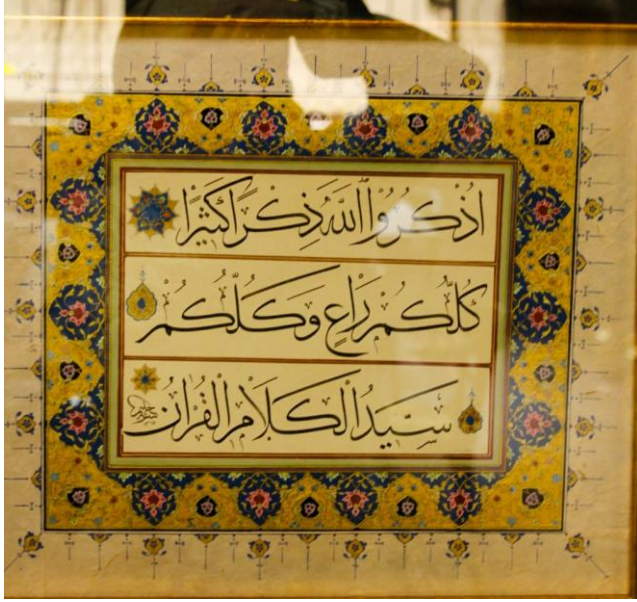 اُذْكُرُوا اللّٰهَ ذِكْرًا كَثِيْرًا
كُلُّكُمْ رَاعٍ وَكُلُّكُمْ
سَيِّدُ الْكَلَامِ الْقُرْاٰنُ